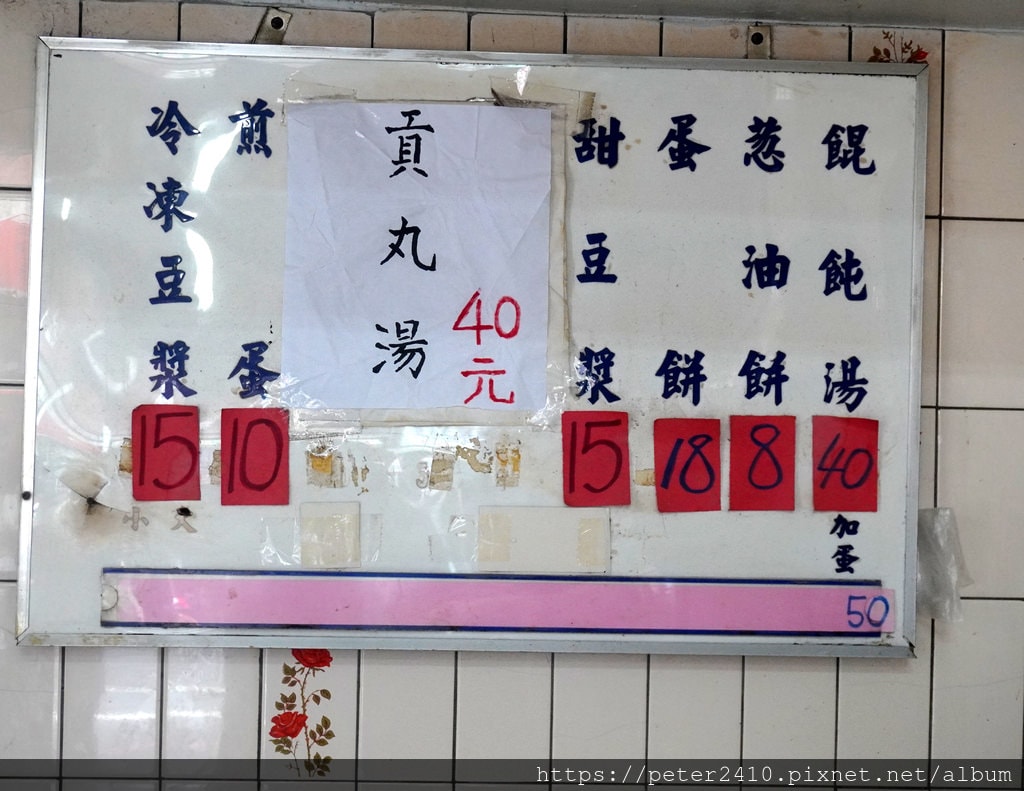 餛飩湯
40
加蛋
50
葱油餅
8
蛋餅
18
甜豆漿
15
貢丸湯
40元
煎蛋
10
冷凍豆漿
15
小 大
https://peter2410.pixnet.net/album